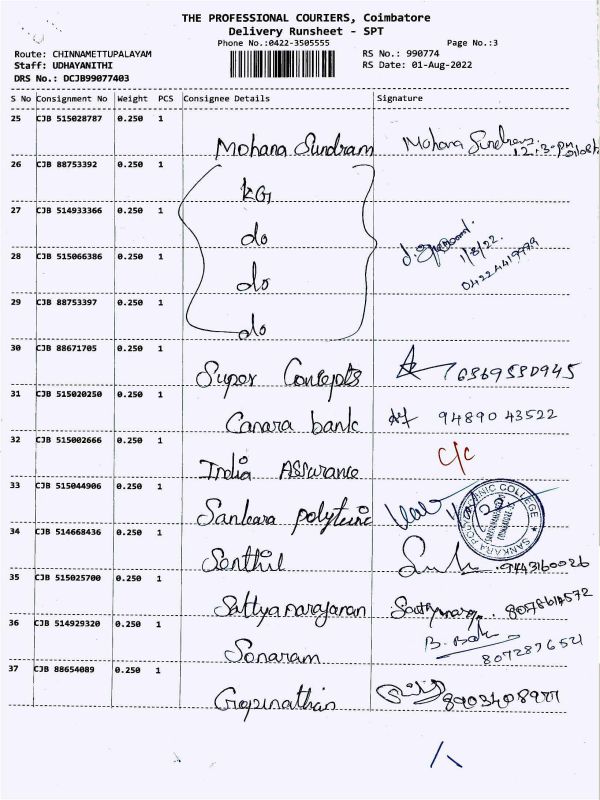 THE PROFESSIONAL COURIERS, Coimbatore
Delivery Runsheet - SPT
Phone No.:0422-3505555 Page No.:3
Route: CHINNAMETTUPALAYAM RS No.: 990774
Staff: UDHAYANITHI RS Date: 01-Aug-2022
DRS No.: DCJB99077403
S No Consignment No Weight PCS Consignee Details Signature
25 CJB 515028787 0.250 1
Mohana Sundram Mohana Sundram
26 CJB 88753392 0.250 1
KG
27 CJB 514933366 0.250 1
do 1/8/22
28 CJB 515066386 0.250 1
do 04224419979
29 CJB 88753397 0.250 1
do
30 CJB 88671705 0.250 1
Super Concepts 6369530945
31 CJB 515020250 0.250 1
Canara bank 94890 43522
32 CJB 515002666 0.250 1
India Assurance C/c
33 CJB 515044906 0.250 1
Sankara polyteinc SANKARA POLYTECHNIC COLLEGE
34 CJB 514668436 0.250 1
Senthil 9443160026
35 CJB 515025700 0.250 1
Sattyanarayanan 8078614572
36 CJB 514929320 0.250 1
Sonaram 8072876521
37 CJB 88654089 0.250 1
Gopinathan 8903408977